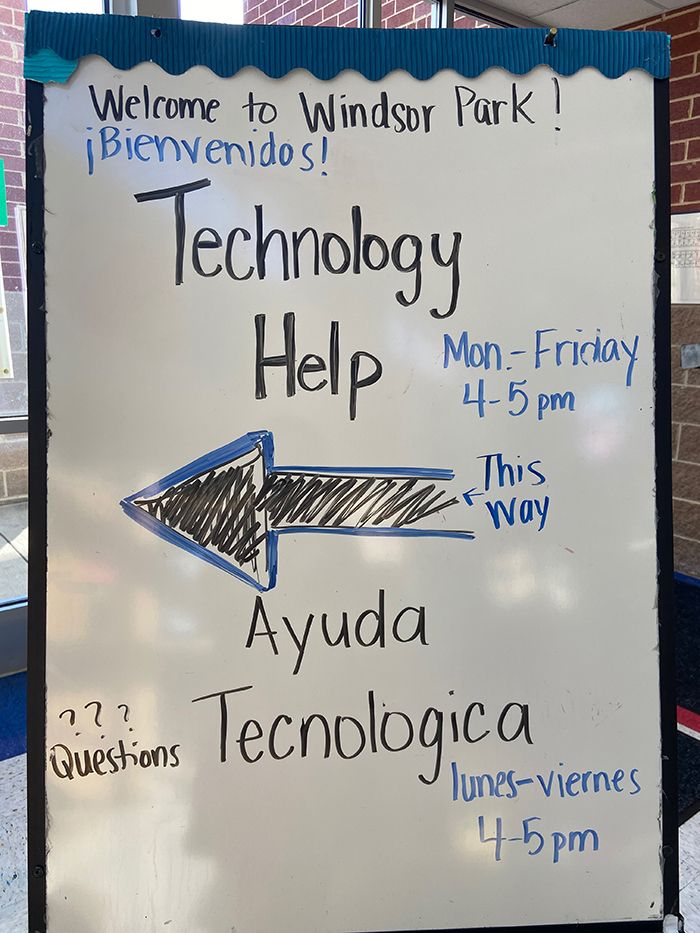 Welcome to Windsor Park!
¡Bienvenidos!
Technology
Help
Mon.-Friday
4-5 pm
This
Way
Ayuda
Tecnologica
lunes-viernes
4-5 pm
???
Questions